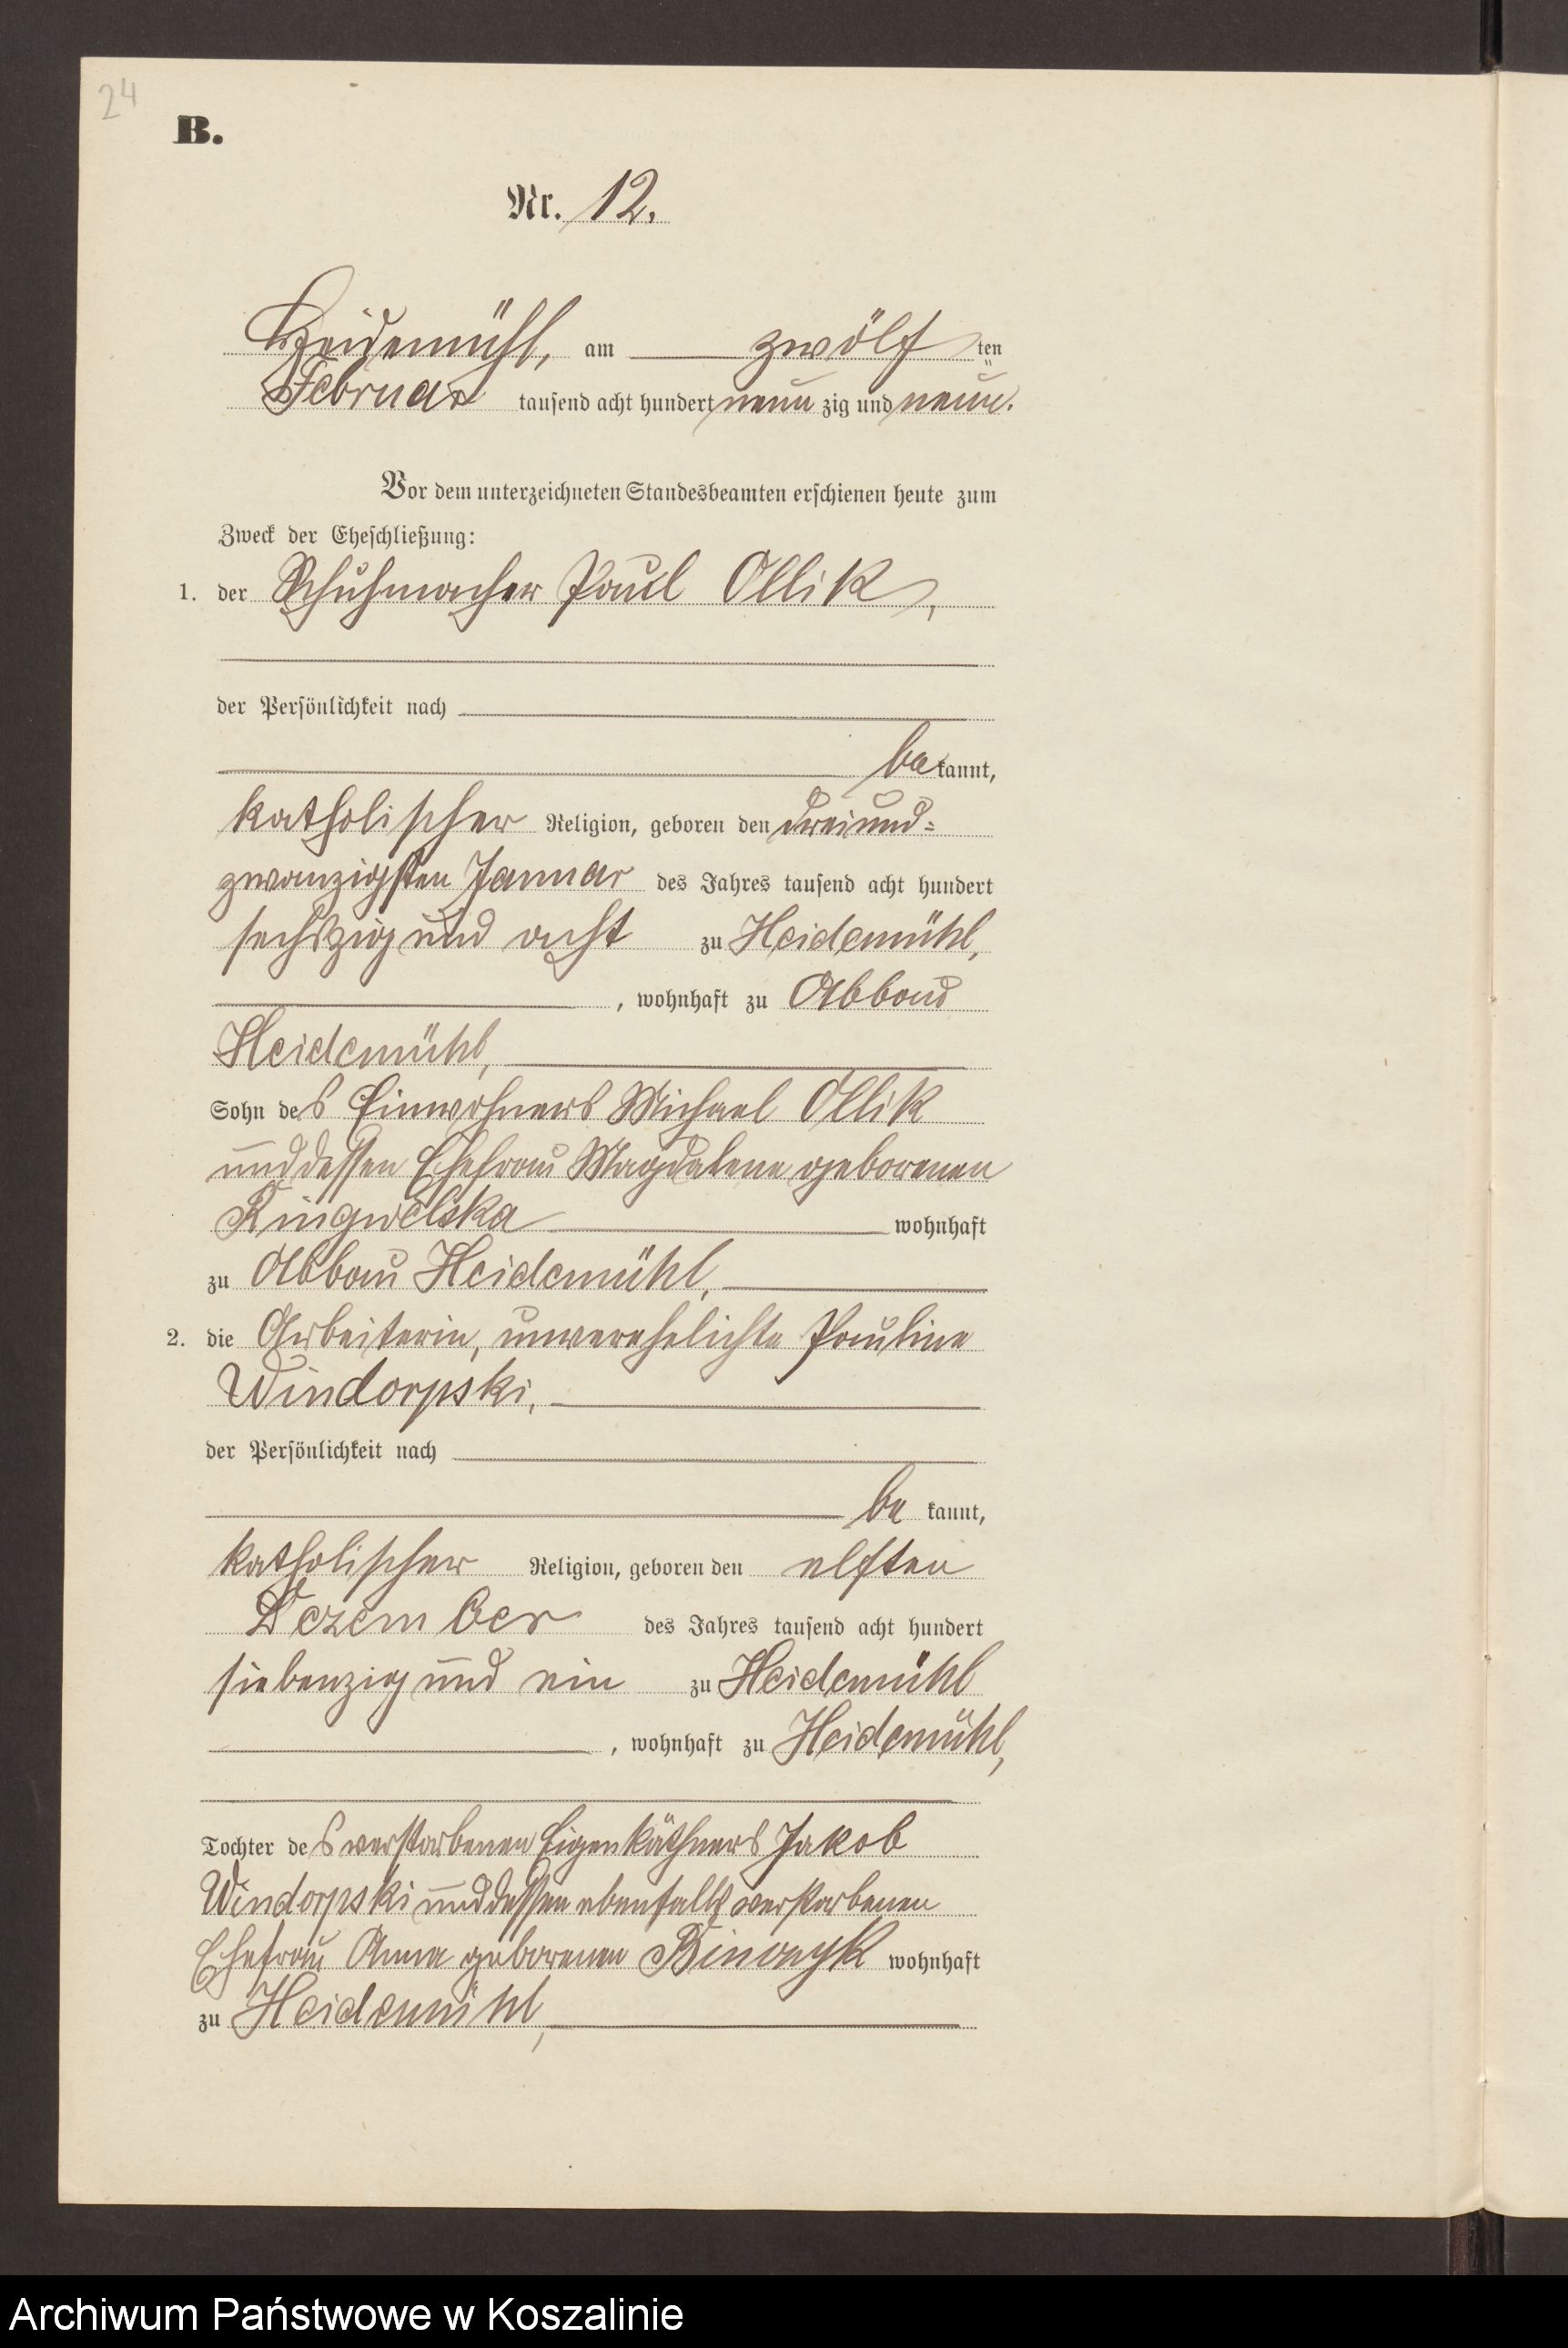 24
B.
Nr. 12.
Heidemühl, am zwölf ten
Februar tausend acht hundert neun zig und neun.
Vor dem unterzeichneten Standesbeamten erschienen heute zum
Zweck der Eheschließung:
1. der Schuhmacher Paul Ollik,
der Persönlichkeit nach
be kannt,
katholischer Religion, geboren den dreiund=
zwanzigsten Januar des Jahres tausend acht hundert
sechszig und acht zu Heidemühl,
, wohnhaft zu Abbau
Heidemühl,
Sohn des Einwohners Michael Ollik
und dessen Ehefrau Magdalena geborenen
wohnhaft
zu Abbau Heidemühl,
2. die Arbeiterin, unverehelichte Pauline
Windorpski,
der Persönlichkeit nach
be kannt,
katholischer Religion, geboren den elften
Dezember des Jahres tausend acht hundert
siebenzig und ein zu Heidemühl
, wohnhaft zu Heidemühl,
Tochter des verstorbenen Eigenkäthners Jakob
Windorpski und dessen ebenfalls verstorbenen
Ehefrau Anna geborenen wohnhaft
zu Heidemühl,
Archiwum Państwowe w Koszalinie